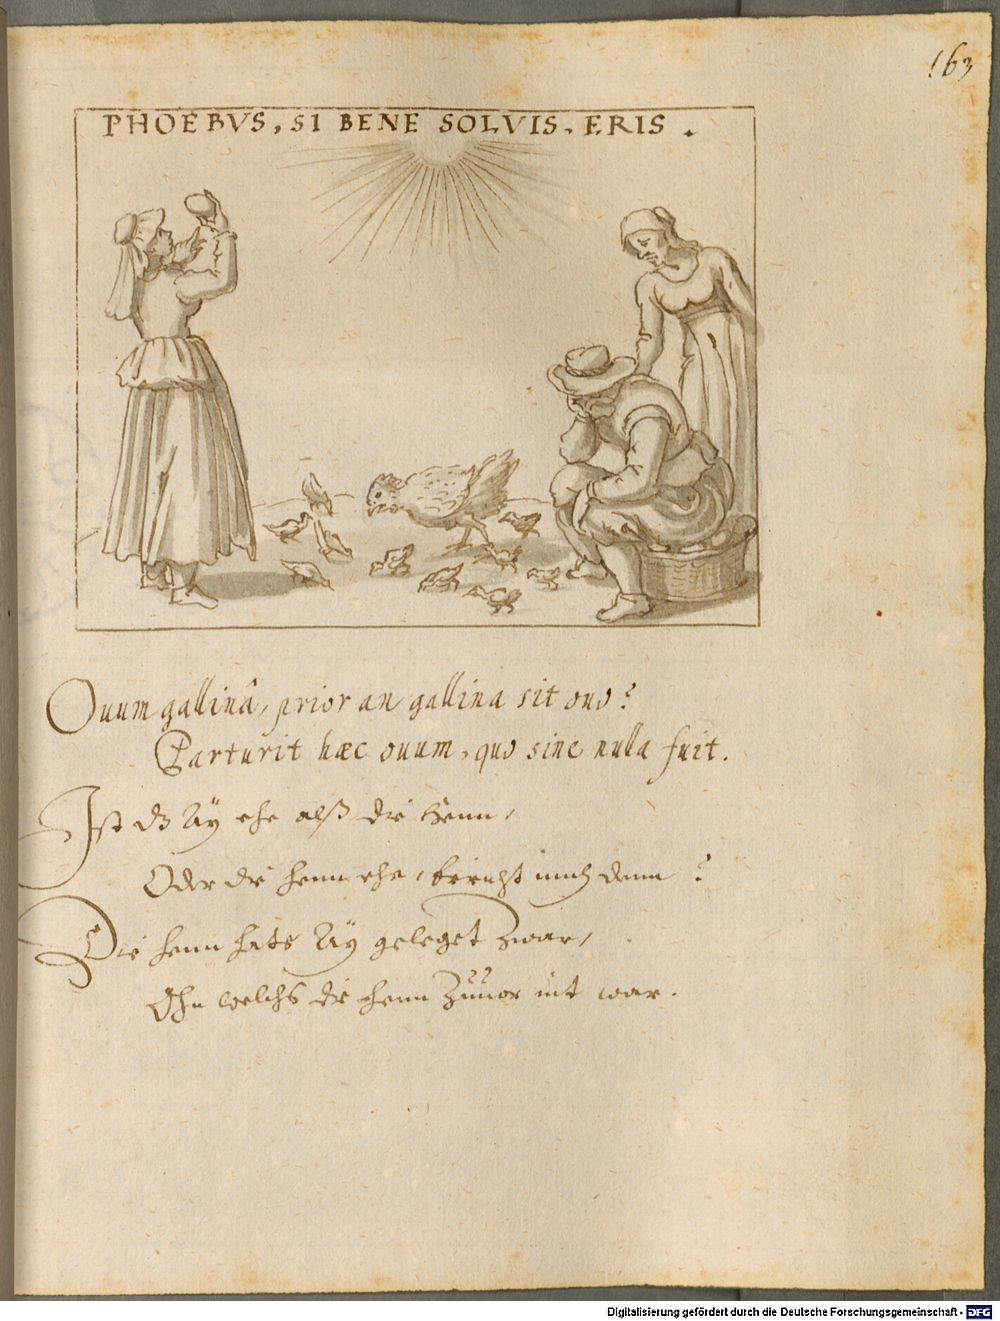 163
PHOEBVS, SI BENE SOLVIS, ERIS.
Ouum gallinâ, prior an gallina sit ouo?
Parturit hæc ouum, quo sine nulla fuit.
Ist dz Ay ehe alß die Henn,
Oder die henn ehe, bericht mich denn?
Die henn hats Ay geleget zwar,
Ohn welchs die Henn zuuor nit war.
Digitalisierung gefördert durch die Deutsche Forschungsgemeinschaft - DFG